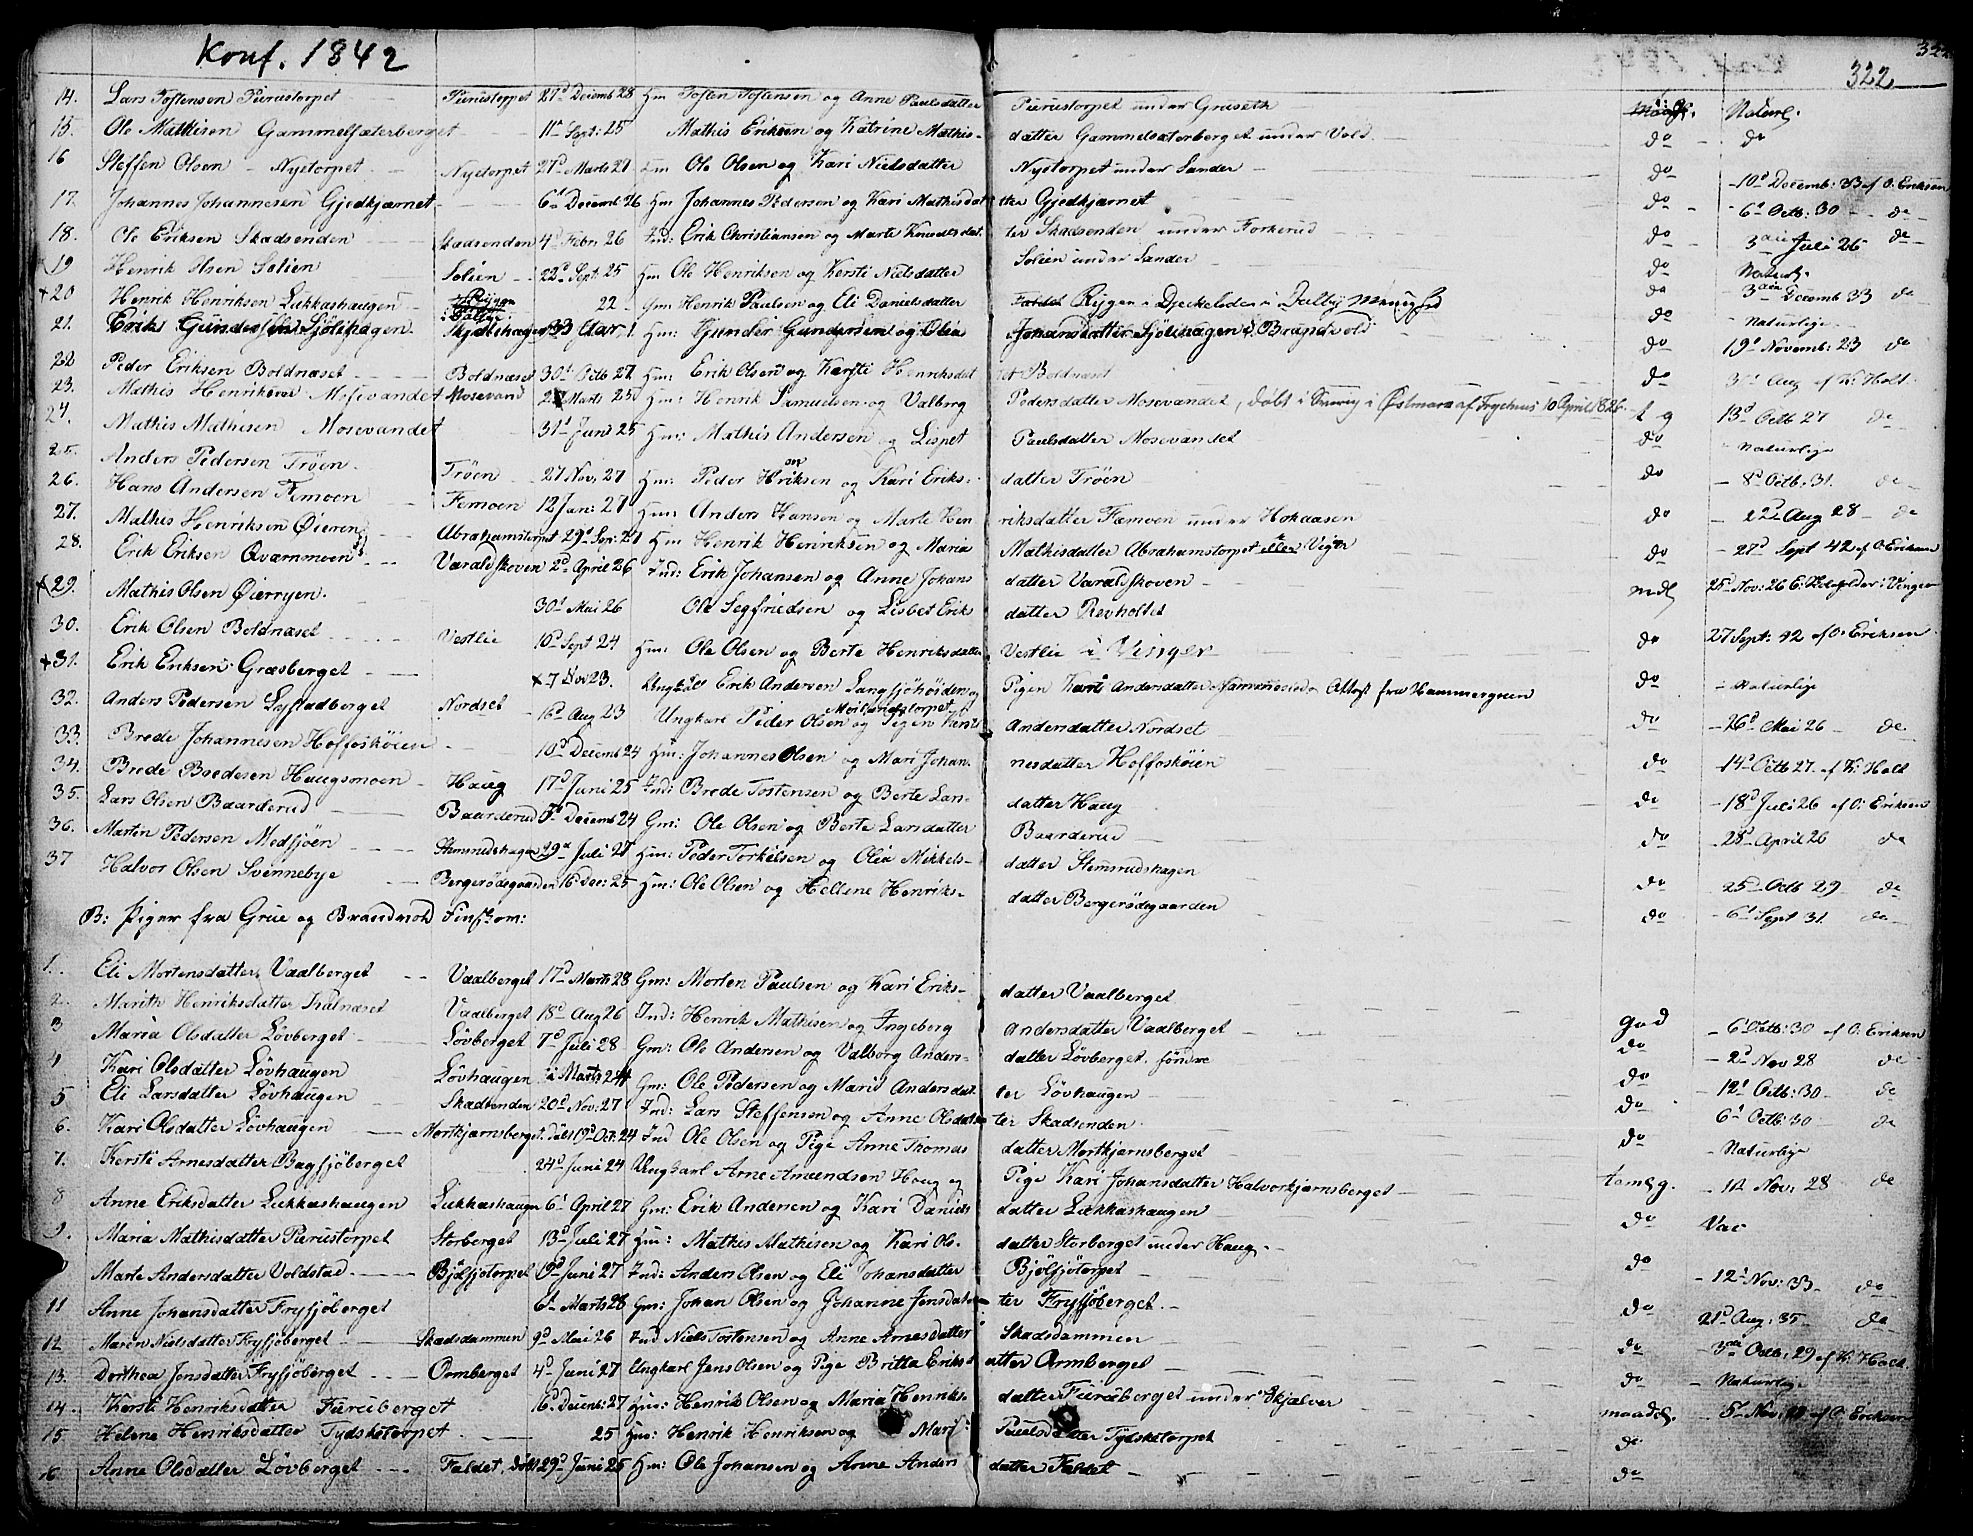 Konf. 1842
322
14. Lars Tostensen Purustorpet Purustorpet 27d Decemb 28 Hm Tosten Tostensen og Anne Paulsdatter Purustorpet under Gruseth Naturl.
15. Ole Mathisen Gammelsæterberget 11te Sept: 25 Mathis Eriksen og Katrine Mathis- datter Gammelsæterberget under Vold do do
16 Steffen Olsen Nystorpet Nystorpet 27d Marts 27 Hm Ole Olsen og Kari Nielsdatter Nystorpet under Sander do 10d Decemb: 33 af O: Eriksen
17. Johannes Johannesen Gjedkjærnet 6d Decemb 26 Hm Johannes Pedersen og Kari Mathisdatter Gjedkjernet do 6d Octb: 30 do
18. Ole Eriksen Skadsenden Skadsenden 4d Febr: 26 Ind: Erik Christiansen og Marte Knudsdatter Skadsenden under Forkerud do Juli 26 do
19 Henrik Olsen Solien Solien 22d Sept: 25 Hm Ole Henriksen og Kersti Nielsdatter Solien under Sander do Naturl.
+20 Henrik Henriksen Lukkashaugen Rijgen 22 Gm Henrik Paulsen og Eli Danielsdatter Rijgen i Dalby do Decemb 33 do
21. Erik Gundersen Sjölihagen 1. Hm: Gunder Gundersen og Olea Johansdatter Sjölihagen i Brandvold do Naturlige
22 Peder Eriksen Boldnæset Boldnæset 30d Octb 27 Hm: Erik Olsen og Karsti Henriksdat Boldnæset do 19d Novemb: 23 do
23. Mathis Henriksen Mosevandet Mosevand Marts 25 Hm: Henrik Samuelsen og Valborg Pedersdatter Mosevandet, døbt i i Østmark af 10 April 1826 do Aug af K: Holt
24. Mathis Mathisen Mosevandet 31d Juni 25 Hm: Mathis Andersen og Lispet Paulsdatter Mosevandet t g 13d Octb 27 do
25. Anders Pedersen Tröen Tröen 27 Nov: 27 Hm: Peder og Kari Eriks- datter Tröen do Naturlige
26. Hans Andersen Femoen Femoen 12 Jan: 27 Hm: Anders Hansen og Marte Hen riksdatter Fæmoen under Hokaasen do 8d Octb: 31. do
27. Mathis Henriksen Öieren Abrahamstorpet 29d Sept: Hm Henrik Henriksen og Maria Mathisdatter Abrahamstorpet Viger do 22d Aug 28 do
28. Erik Eriksen Qværnmoen Varaldskoven 2d April 26 Ind: Erik Johansen og Anne Johans datter Varaldskoven do 27d Sept 42 af O: Eriksen
29. Mathis Olsen Öierryen. 30d Mai 26 Ole Segfriedsen og Lisbet Erik datter Revholtet mdl 25d Nov: 26 i Vinger
30. Erik Olsen Boldnæset Vestlie 10d Sept 24 Hm: Ole Olsen og Berte Henriksdatter Vestlie i Vinger do 27 Sept: 42 af O: Eriksen
+31. Erik Eriksen Græsberget + 7 Nov 23. Ungkarl Erik Andersen og Pigen Kari Andersdatter Attest fra Hammergreen do Naturlige
32. Anders Pedersen Nordset 16d Aug 23 Ungkarl Peder Olsen Moilandstorpet og Pigen Andersdatter Nordset do 26d Mai 26 do
33. Brede Johannesen Hoffosköien 10d Decemb 24 Hm: Johannes Olsen og Mari Johan- nesdatter Hoffoskoien do 14d Octb 27. af K: Holt
34. Brede Bredesen Haugsmoen Haug 17d Juni 25 Ind: Brede Tostensen og Berte Lars- datter Haug do 18d Juli 26 af O: Eriksen
35. Lars Olsen Baarderud Baarderud Decemb 24 Gm: Ole Olsen og Berte Larsdatter Baarderud do 28d April 26 do
36. Martin Pedersen Medsjöen Stemsrudshagen 29d Juli 27 Hm: Peder Torkelsen og Olia Mikkels- datter Stemsrudshagen do 25d Octb 29 do
37 Halvor Olsen Svennebye Bergerödegaarden 16 Dec: 25 Hm: Ole Olsen og Hellene Henriks- datter Bergerödegaarden do 6d Sept 31. do
B: Piger fra Grue og Brandvold Finskom:
1. Eli Mortensdatter Vaalberget Vaalberget 17d Marts 28 Gm: Morten Paulsen og Kari Eriks- datter Vaalberget god 6d Octb: 30 af O: Eriksen
2. Marith Henriksdatter Kalnæset Vaalberget 18d Aug 26 Ind: Henrik Mathisen og Ingeborg Andersdatter Vaalberget do 2d Nov 28 do
3 Maria Olsdatter Lövberget Lövberget 7d Juli 28 Gm: Ole Andersen og Valborg Anders- datter Lövberget söndre do 12d Octb: 30 do
4 Kari Olsdatter Lövhaugen Lövhaugen Marts 24 Gm: Ole Pedersen og Mari Andersdat- ter Lövhaugen do 6d Octb: 30 do
5 Eli Larsdatter Lövhaugen Skadsenden 20d Nov: 27 Ind: Lars Steffensen og Anne Olsdat ter Skadsenden do Naturlige
6. Kari Olsdatter Lövhaugen Mortkjærnsberget. döbt 19d Oct: 24 Ind Ole Olsen og Pige Anne Thomas datter Mortkjærnsberget
7. Kersti Arnesdatter Bagsjöberget 24d Juni 24 Ungkarl Arne Amundsen Haug og Pige Kari Johansdatter Halvorkjærnsberget tem. g. 12 Nov: 28 do
8 Anne Eriksdatter Lukkashaugen Lukkashaugen 6d April 27 Gm: Erik Andersen og Kari Daniels datter Lukkashaugen do Vac
9. Maria Mathisdatter Purustorpet Storberget 13d Juli 27 Hm: Mathis Mathisen og Kari Ols- datter Storberget under Haug do 12d Nov: 33 do
Marte Andersdatter Voldstad Bjölsjötorpet 9d Juni 27 Ind: Anders Olsen og Eli Johansdatter Bjölsjötorpet do 21d Aug: 35 do
11 Anne Johansdatter Frysjöberget 6d Marts 28 Gm: Johan Olsen og Johanne Jensdat- ter Frysjöberget do Octb: 29 af K: Holt
12 Maren Nielsdatter Frysjöberget Skadsdammen 9d Mai 26 Ind Niels Tostensen og Anne Arnesdatter Skadsdammen do Naturlige
13. Dorthea Jensdatter Frysjöberget Ormberget 4d Juni 27 Ungkarl Jens Olsen og Pige Britta Eriksdatter Ormberget
14. Kersti Henriksdatter Furuberget 16d Decemb: 27 Hm: Henrik Olsen og Maria Henriks- datter Furuberget under Skjælver maadel. 5d Nov: af O: Eriksen
15 Helene Henriksdatter Tydsketorpet 25 Hm: Henrik Henriksen og Mari Paulsdatter Tydsketorpet do
16 Anne Olsdatter Lövberget Faldet, döbt 29d Juni 25 Hm: Ole Johansen og Anne Anders datter Faldet do